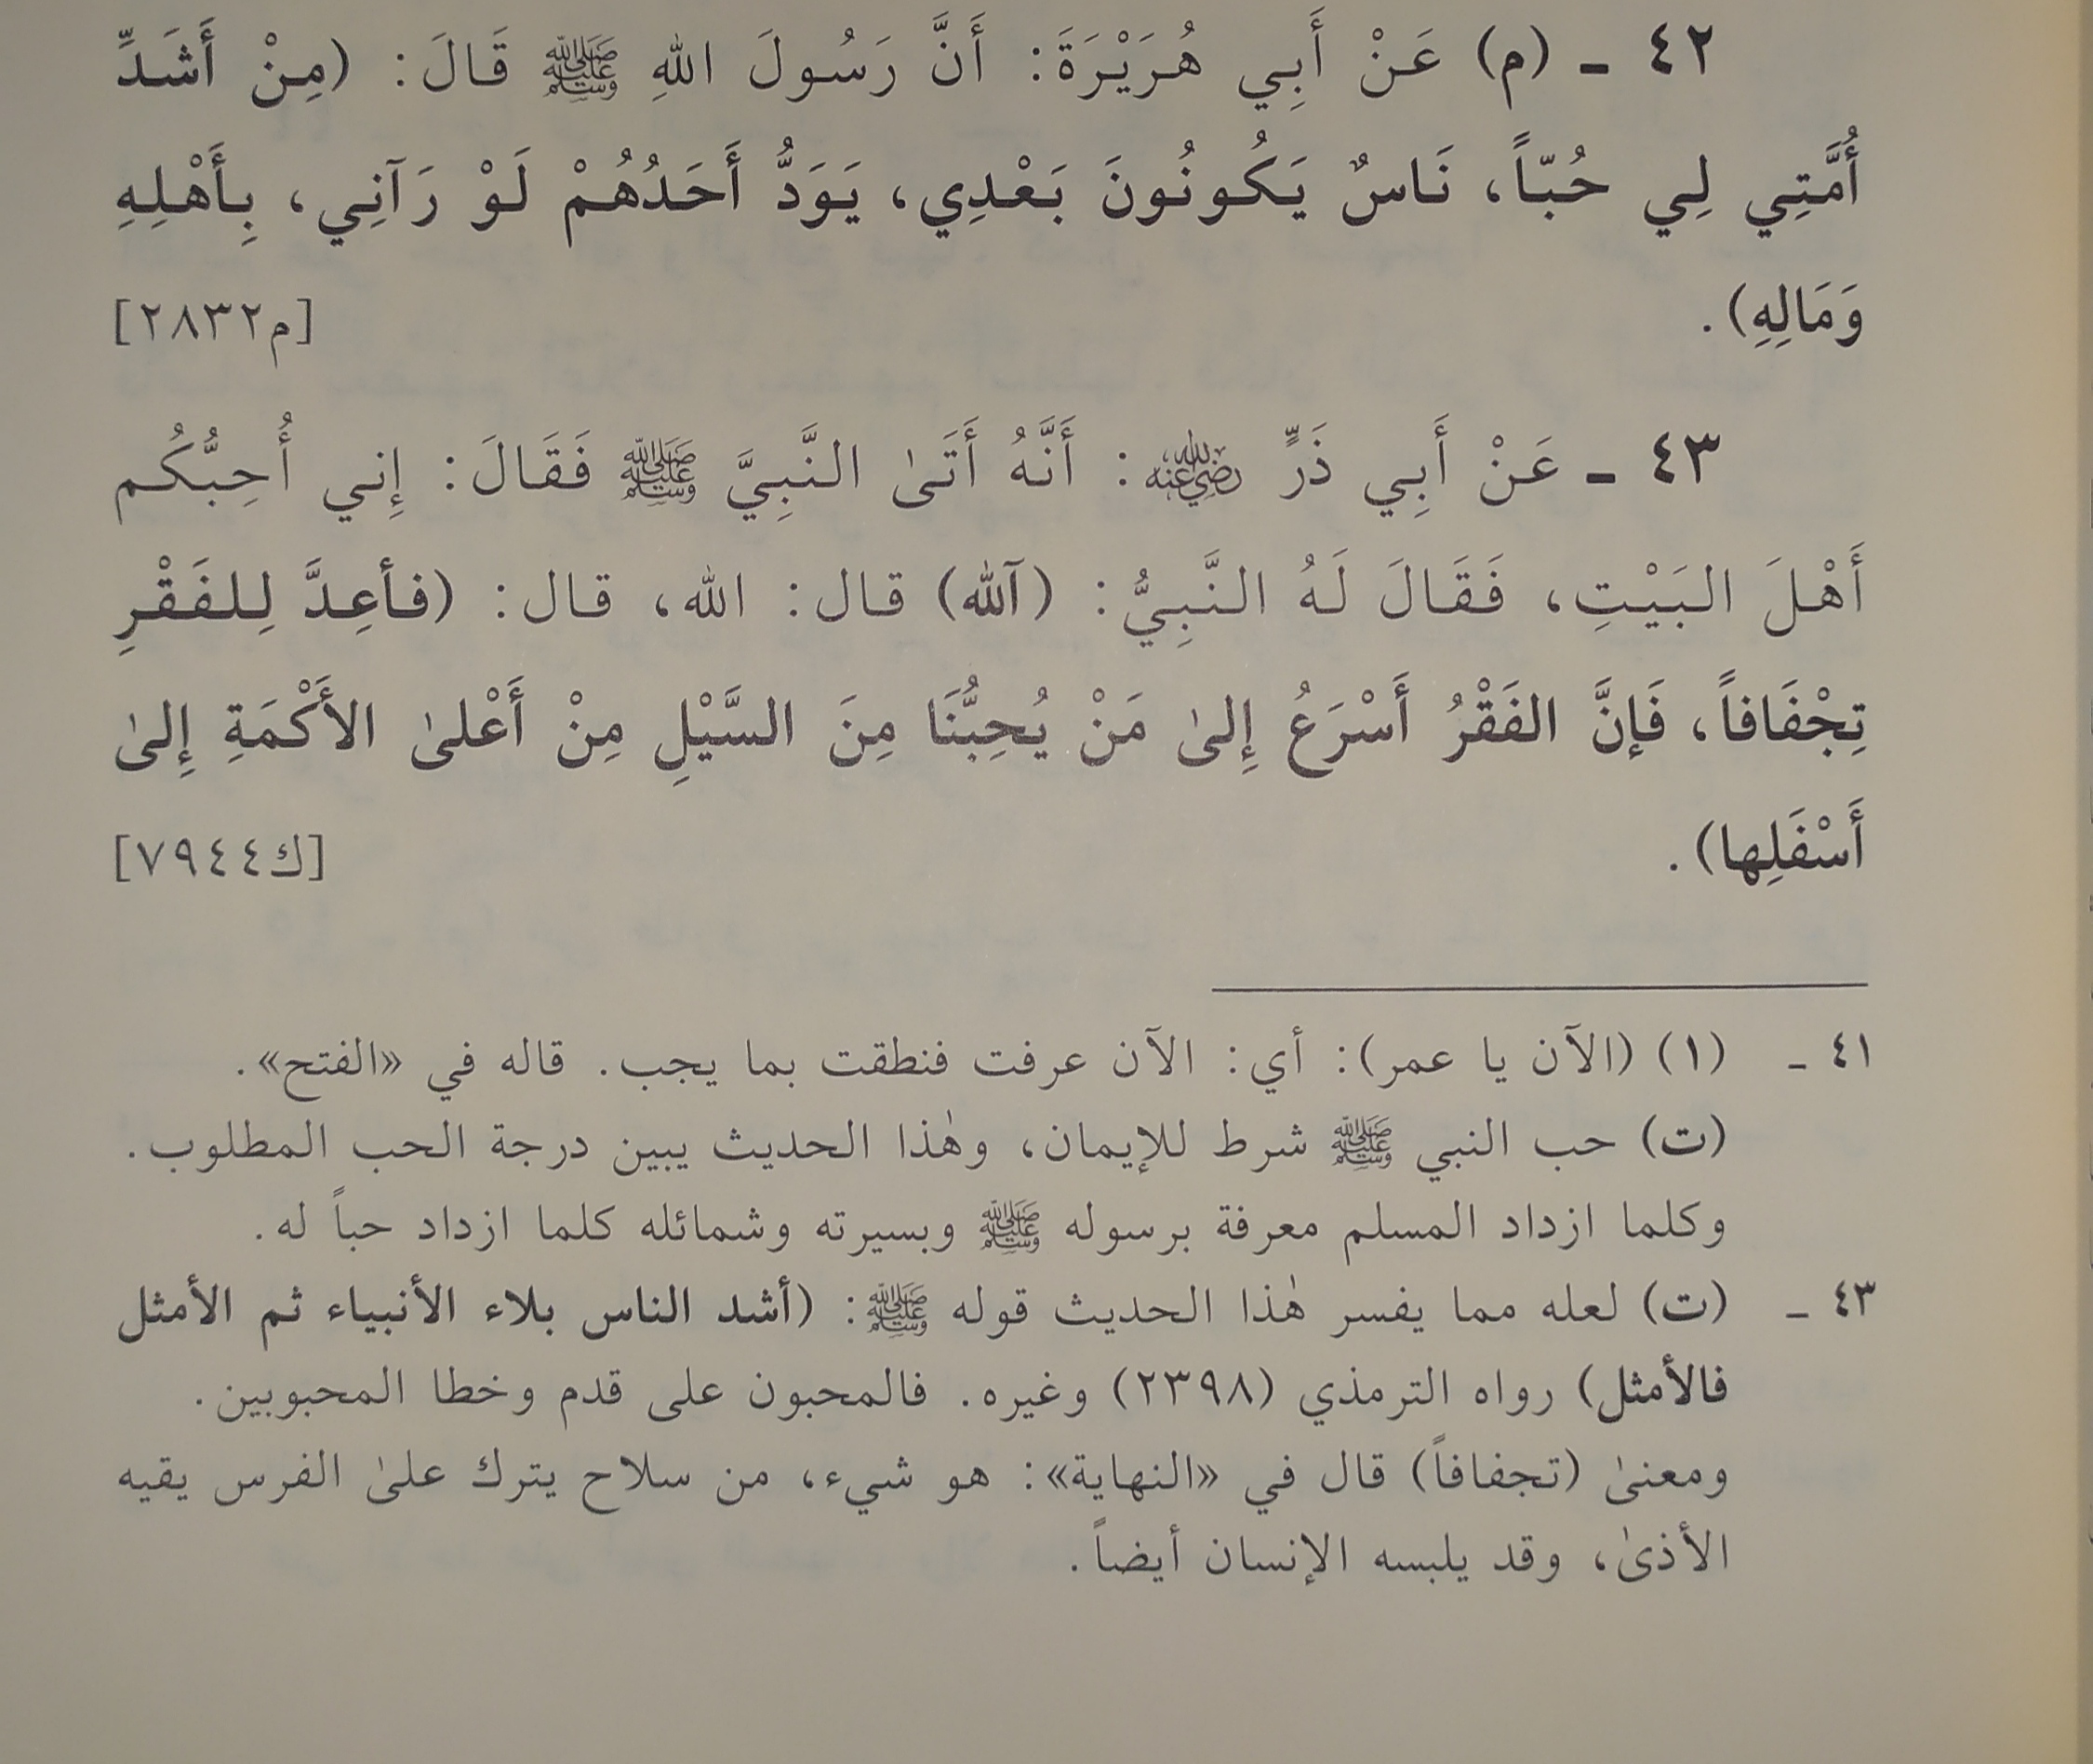 ٤٢ ـ (م) عَنْ أَبِي هُرَيْرَةَ: أَنَّ رَسُولَ اللهِ ﷺ قَالَ: (مِنْ أَشَدِّ
أُمَّتِي لِي حُبّاً، نَاسٌ يَكُونُونَ بَعْدِي، يَوَدُّ أَحَدُهُمْ لَوْ رَآنِي، بِأَهْلِهِ
وَمَالِهِ). [م٢٨٣٢]
٤٣ ـ عَنْ أَبِي ذَرٍّ رضي الله عنه: أَنَّهُ أَتَىٰ النَّبِيَّ ﷺ فَقَالَ: إِني أُحِبُّكُم
أَهْلَ البَيْتِ، فَقَالَ لَهُ النَّبِيُّ: (آلله) قال: الله، قال: (فأعِدَّ لِلفَقْرِ
تِجْفَافاً، فَإنَّ الفَقْرُ أَسْرَعُ إِلىٰ مَنْ يُحِبُّنَا مِنَ السَّيْلِ مِنْ أَعْلىٰ الأَكْمَةِ إِلىٰ
أَسْفَلِها). [ك٧٩٤٤]
٤١ ـ (١) (الآن يا عمر): أي: الآن عرفت فنطقت بما يجب. قاله في «الفتح».
(ت) حب النبي ﷺ شرط للإيمان، وهٰذا الحديث يبين درجة الحب المطلوب.
وكلما ازداد المسلم معرفة برسوله ﷺ وبسيرته وشمائله كلما ازداد حباً له.
٤٣ ـ (ت) لعله مما يفسر هٰذا الحديث قوله ﷺ: (أشد الناس بلاء الأنبياء ثم الأمثل
فالأمثل) رواه الترمذي (٢٣٩٨) وغيره. فالمحبون على قدم وخطا المحبوبين.
ومعنىٰ (تجفافاً) قال في «النهاية»: هو شيء، من سلاح يترك علىٰ الفرس يقيه
الأذىٰ، وقد يلبسه الإنسان أيضاً.